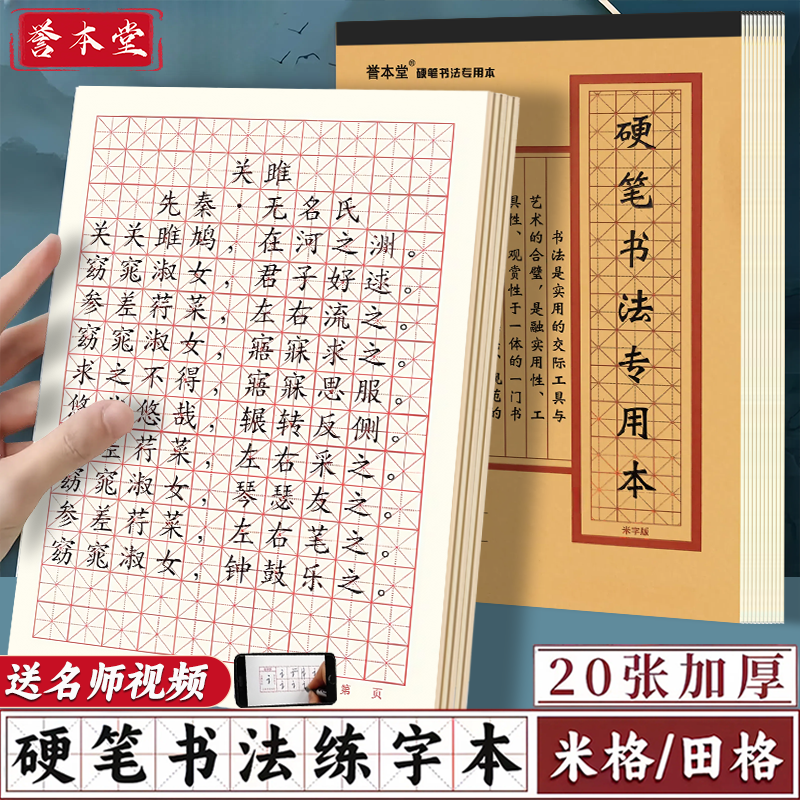 誉本堂
誉本堂®硬笔书法专用本
关雎
先秦·无名氏
关关雎鸠，在河之洲。
窈窕淑女，君子好逑。
参差荇菜，左右流之。
窈窕淑女，寤寐求之。
求之不得，寤寐思服。
悠 悠哉，辗转反侧。
荇菜，左右采之。
窕淑女，琴瑟友之。
参差荇菜，左右芼之。
窈窕淑女，钟鼓乐之。
第 页
硬笔书法专用本
米字版
书法是实用的交际工具与
艺术的合璧，是融实用性、工
具性、观赏性于一体的一门书
规范的
送名师视频
20张加厚
硬笔书法练字本
米格/田格